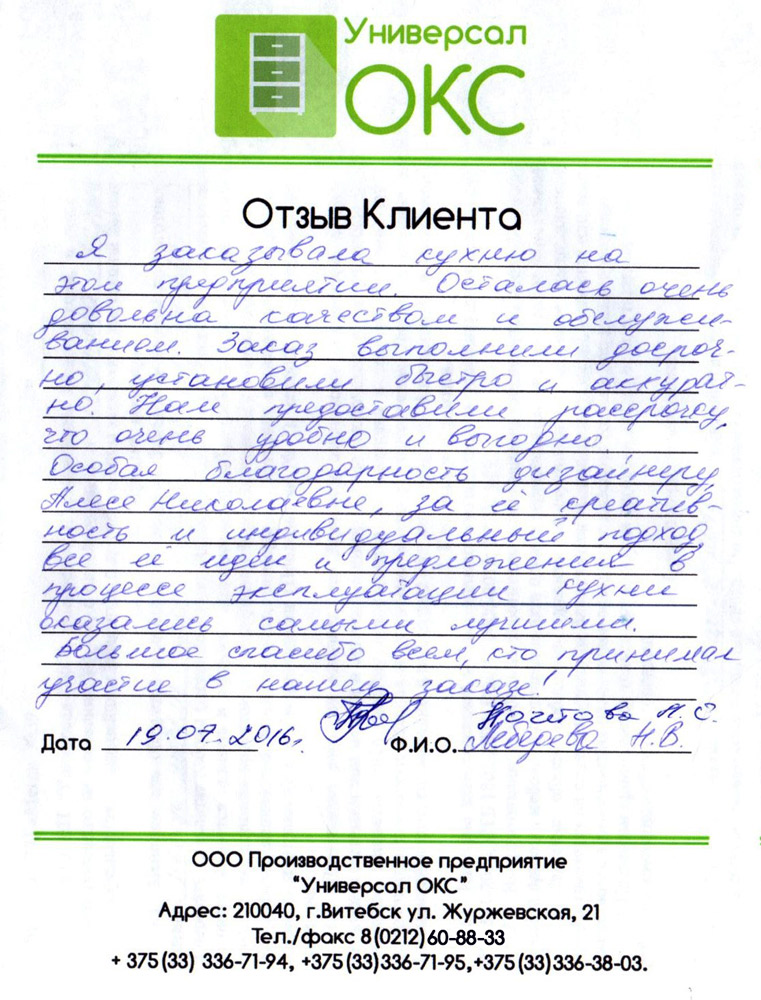 Универсал
ОКС
Отзыв Клиента
Я заказывала кухню на
этом предприятии. Осталась очень
довольна качеством и обслужи-
ванием. Заказ выполнили досроч-
но, установили быстро и аккурат-
но. Нам предоставили рассрочку,
что очень удобно и выгодно.
Особая благодарность дизайнеру,
Алесе Николаевне, за её креатив-
ность и индивидуальный подход,
все её идеи и предложения в
процессе эксплуатации кухни
оказались самыми лучшими.
Большое спасибо всем, кто принимал
участие в нашем заказе!
Дата 19.07.2016г. Ф.И.О. Лебедева Н.В.
ООО Производственное предприятие
"Универсал ОКС"
Адрес: 210040, г.Витебск ул. Журжевская, 21
Тел./факс 8(0212)60-88-33
+ 375(33) 336-71-94, +375(33)336-71-95,+375(33)336-38-03.